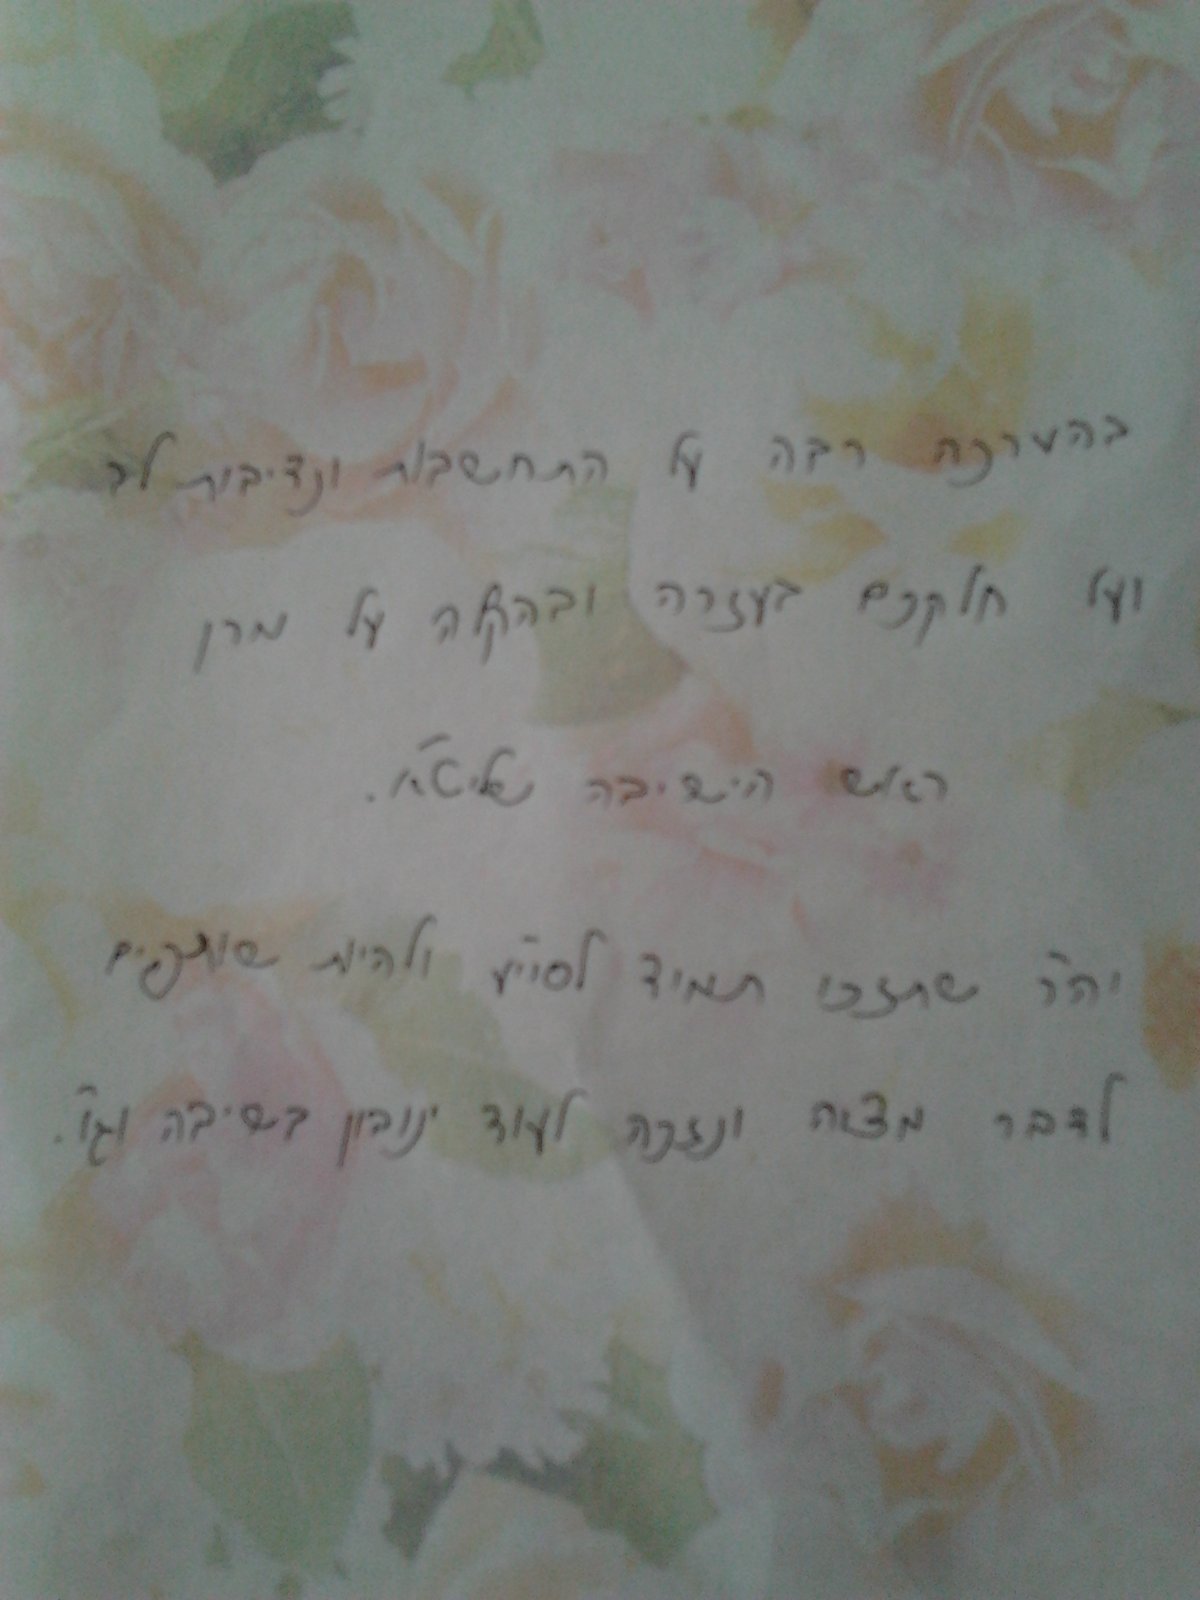 בהערכה רבה על התחשבות ונדיבות לב
ועל חלקכם בעזרה ובהקלה על מרן
ראש הישיבה שליט"א.
יה"ר שתזכו תמיד לסייע ולהיות שותפים
לדבר מצוה ונזכה לעוד ינובון בשיבה וגו'.